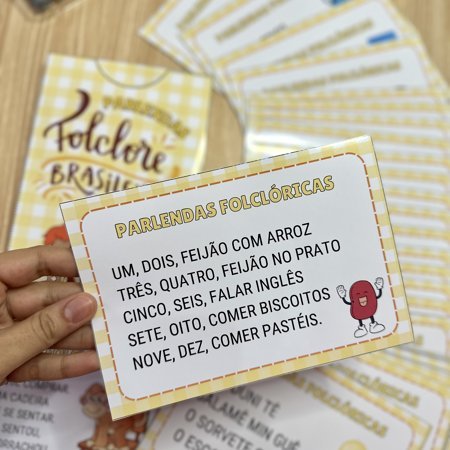 PARLENDAS
Folclore
PARLENDAS FOLCLÓRICAS
UM, DOIS, FEIJÃO COM ARROZ
TRÊS, QUATRO, FEIJÃO NO PRATO
CINCO, SEIS, FALAR INGLÊS
SETE, OITO, COMER BISCOITOS
NOVE, DEZ, COMER PASTÉIS.
CADEIRA
SE SENTAR
SENTOU,
TÊ
SALAMÊ MIN GUÊ
O SORVETE